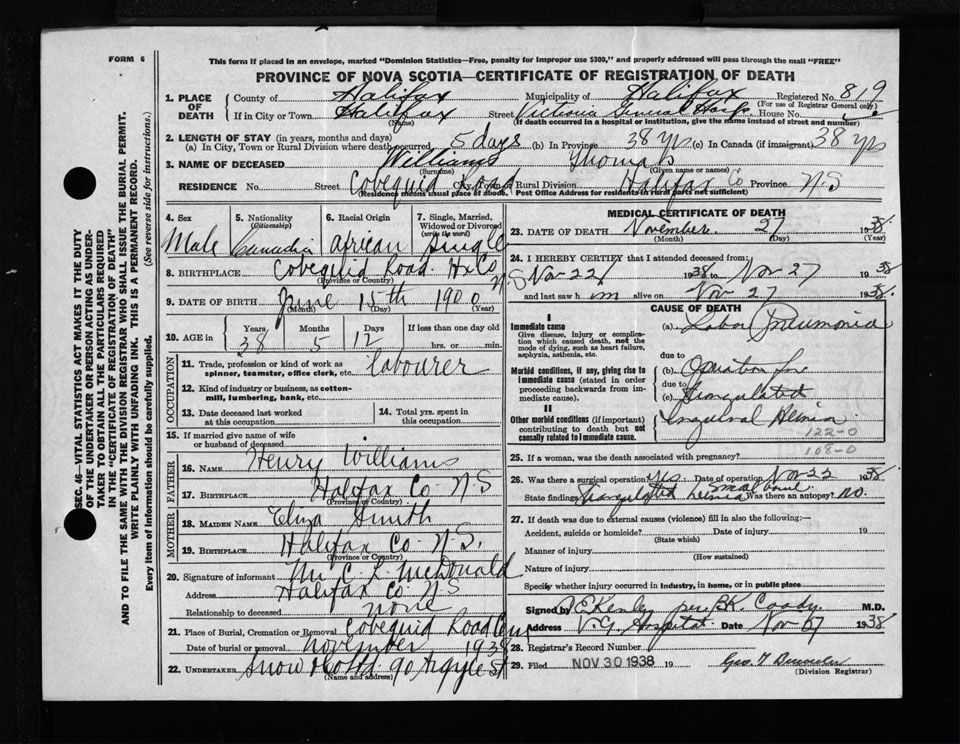 FORM 6
This form if placed in an envelope, marked "Dominion Statistics—Free, penalty for improper use $300," and properly addressed will pass through the mail "FREE"
PROVINCE OF NOVA SCOTIA—CERTIFICATE OF REGISTRATION OF DEATH
1. PLACE OF DEATH
County of Halifax Municipality of Halifax Registered No. 819
(For use of Registrar General only)
If in City or Town Halifax Street Victoria General Hosp. House No.
(Name) (If death occurred in a hospital or institution, give the name instead of street and number)
2. LENGTH OF STAY (in years, months and days)
(a) In City, Town or Rural Division where death occurred 5 days (b) In Province 38 yrs (c) In Canada (if immigrant) 38 yrs
3. NAME OF DECEASED Williams Thomas
(Surname) (Given name or names)
RESIDENCE No. Street Cobequid Road City, Town or Rural Division Halifax Co Province N.S
(Residence means usual place of abode. Post Office Address for residents in rural parts not sufficient)
4. Sex 5. Nationality (Citizenship) 6. Racial Origin 7. Single, Married, Widowed or Divorced (write the word)
Male Canadia African Single
8. BIRTHPLACE Cobequid Road Hx Co N.S
(Province or Country)
9. DATE OF BIRTH June 15th 1900
(Month) (Day) (Year)
10. AGE in Years Months Days If less than one day old
38 5 12 hrs. or min.
OCCUPATION
11. Trade, profession or kind of work as spinner, teamster, office clerk, etc. labourer
12. Kind of industry or business, as cotton-mill, lumbering, bank, etc.
13. Date deceased last worked at this occupation
14. Total yrs. spent in this occupation
15. If married give name of wife or husband of deceased
FATHER
16. NAME Henry Williams
17. BIRTHPLACE Halifax Co N S
(Province or Country)
MOTHER
18. MAIDEN NAME Eliza Smith
19. BIRTHPLACE Halifax Co N.S.
(Province or Country)
20. Signature of informant Mr C. L. McDonald
Address Halifax Co N S
Relationship to deceased none
21. Place of Burial, Cremation or Removal Cobequid Road Cem
Date of burial or removal November 1938
22. UNDERTAKER Snow & Co Ltd 90 Argyle St
(Name and address)
MEDICAL CERTIFICATE OF DEATH
23. DATE OF DEATH November 27 1938
(Month) (Day) (Year)
24. I HEREBY CERTIFY that I attended deceased from:
Nov 22 1938 to Nov 27 1938
and last saw h im alive on Nov 27 1938.
CAUSE OF DEATH
I
Immediate cause
Give disease, injury or complication which caused death, not the mode of dying, such as heart failure, asphyxia, asthenia, etc.
(a) Lobar Pneumonia
due to
Morbid conditions, if any, giving rise to immediate cause (stated in order proceeding backwards from immediate cause).
(b) Operation for
due to
(c) Strangulated
II
Other morbid conditions (if important) contributing to death but not causally related to immediate cause.
Inguinal Hernia
122-0
108-0
25. If a woman, was the death associated with pregnancy?
26. Was there a surgical operation? yes Date of operation Nov 22 1938
State findings Strangulated small bowel hernia Was there an autopsy? no.
27. If death was due to external causes (violence) fill in also the following:—
Accident, suicide or homicide? Date of injury 19
(State which)
Manner of injury
(How sustained)
Nature of injury
Specify whether injury occurred in industry, in home, or in public place
Signed by per M.D.
Address V.G. Hospital Date Nov 1938
28. Registrar's Record Number
29. Filed NOV 30 1938 19
(Division Registrar)
SEC. 46—VITAL STATISTICS ACT MAKES IT THE DUTY
OF THE UNDERTAKER OR PERSON ACTING AS UNDER-
TAKER TO OBTAIN ALL THE PARTICULARS REQUIRED
IN THE "CERTIFICATE OF REGISTRATION OF DEATH"
AND TO FILE THE SAME WITH THE DIVISION REGISTRAR WHO SHALL ISSUE THE BURIAL PERMIT.
WRITE PLAINLY WITH UNFADING INK. THIS IS A PERMANENT RECORD.
Every item of information should be carefully supplied. (See reverse side for instructions.)